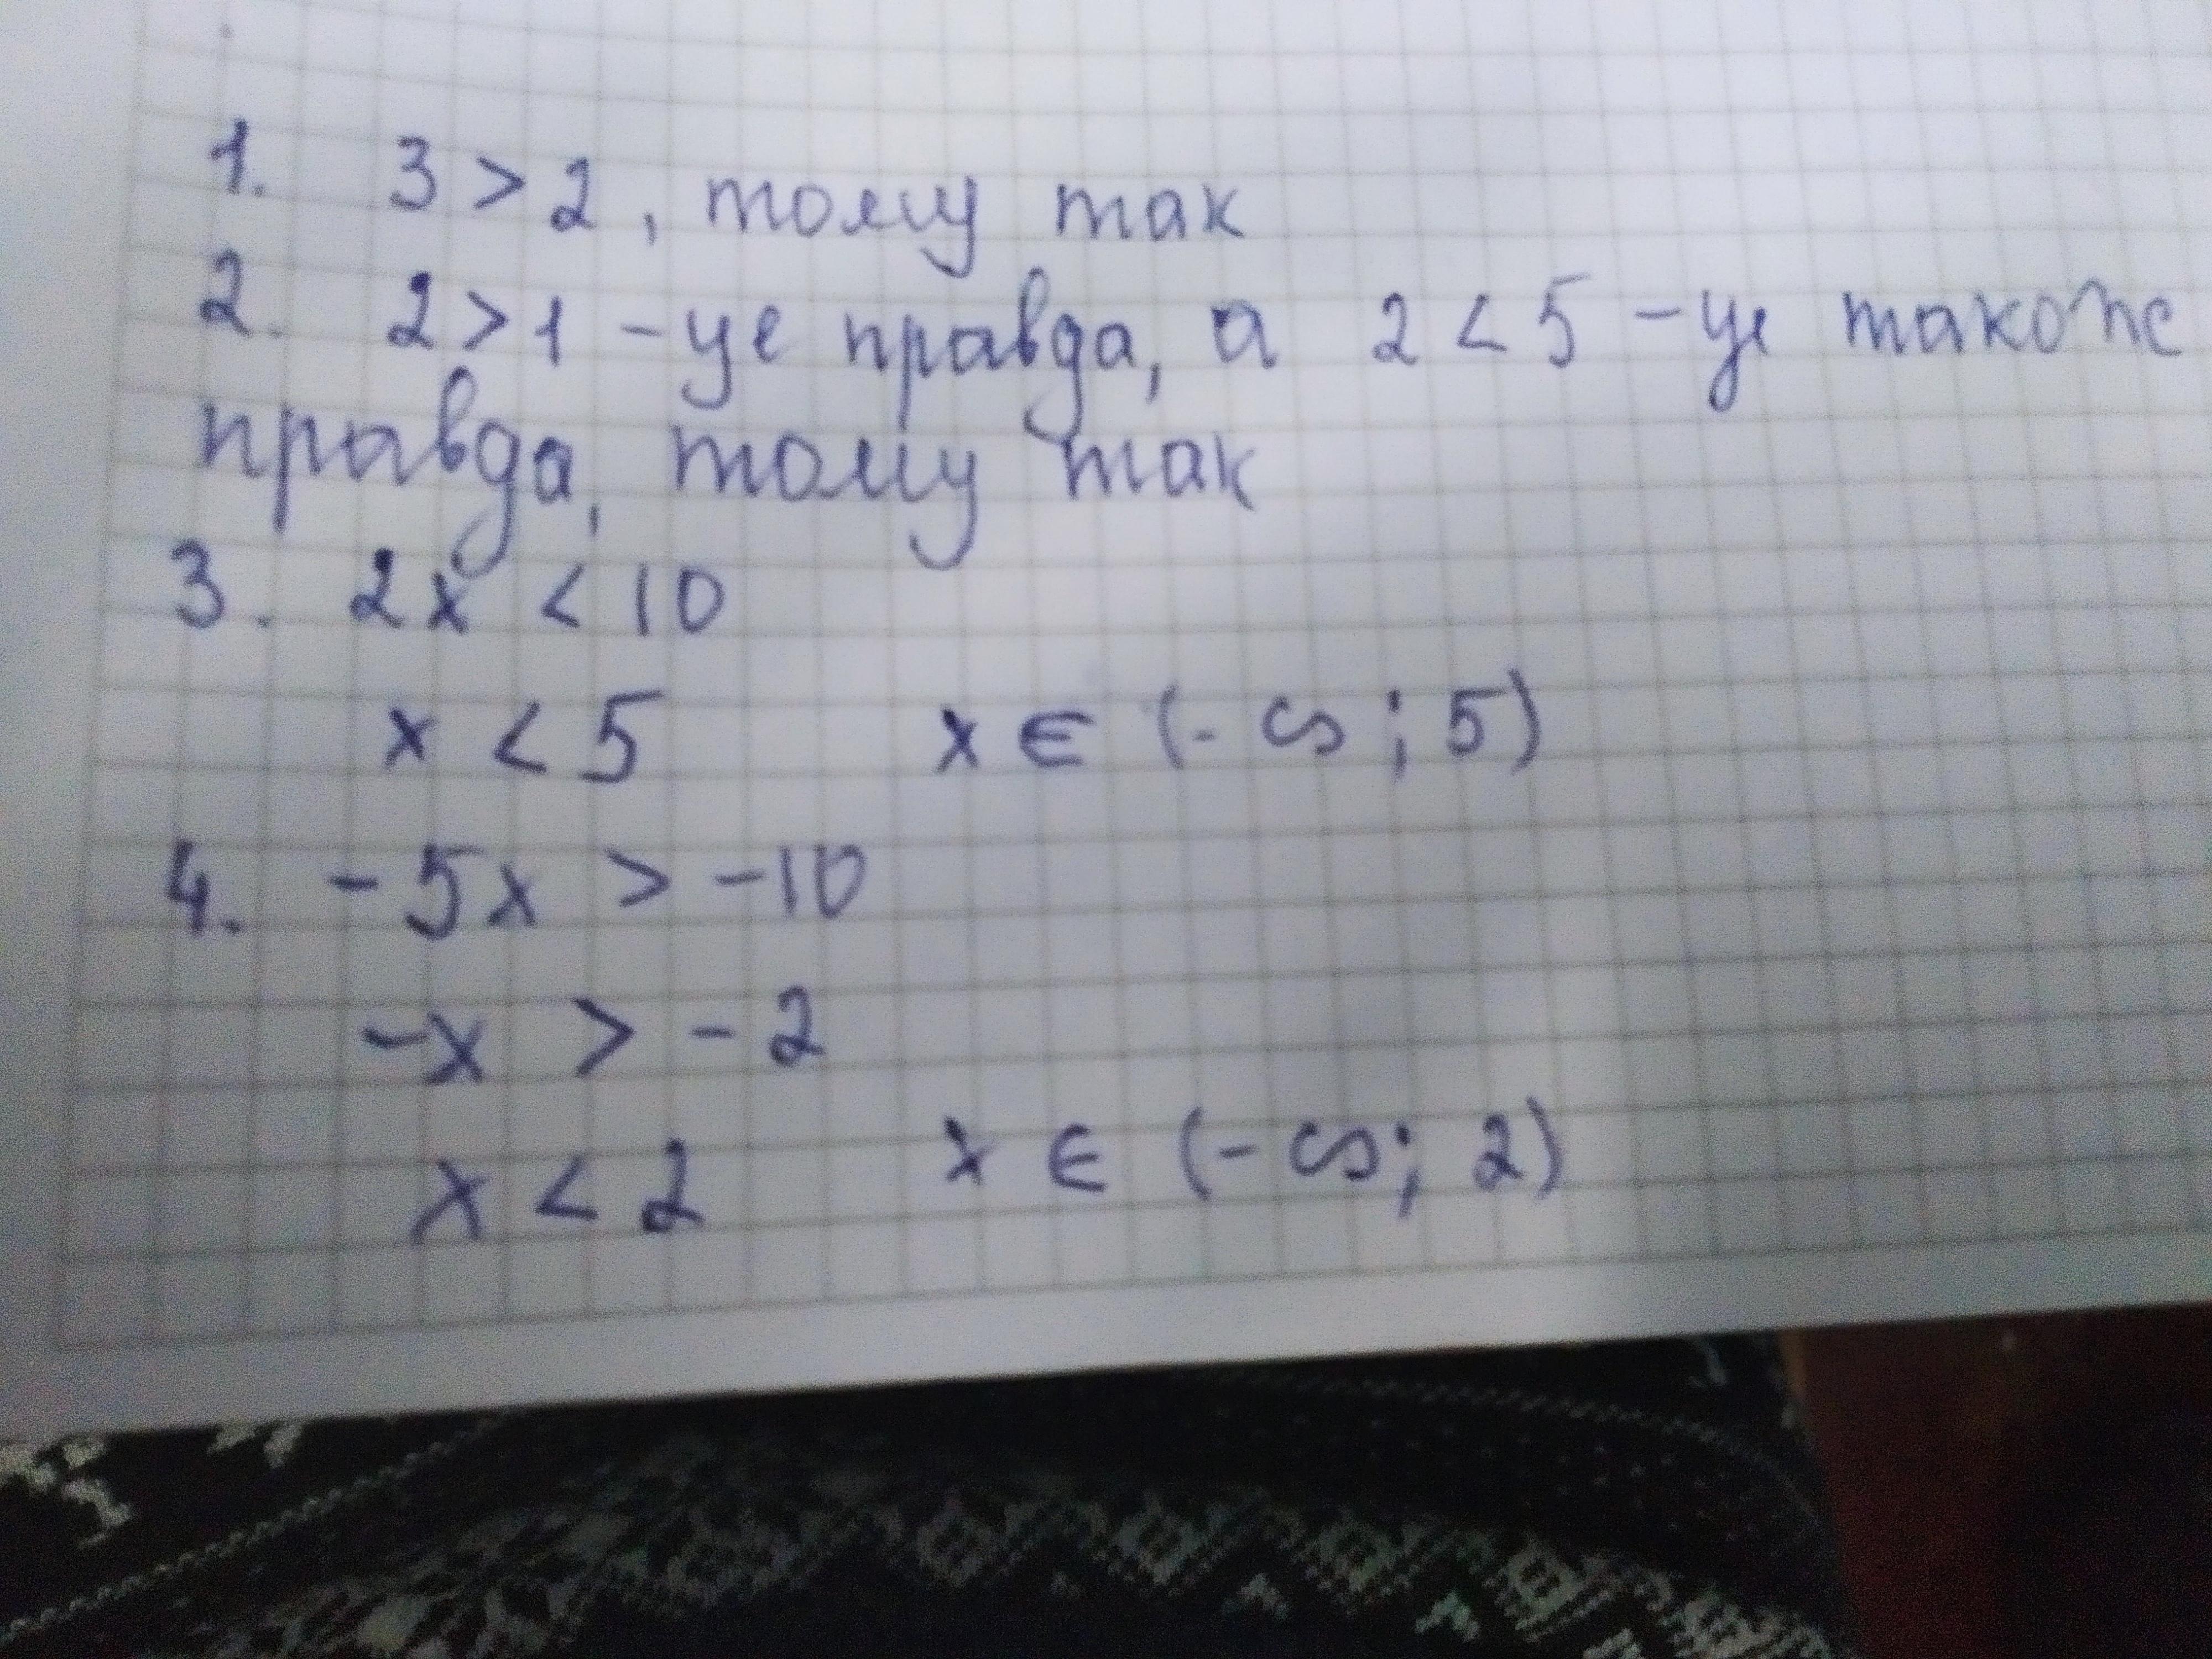 1. 3 > 2, тому так
2. 2 > 1 - це правда, а 2 < 5 - це також
правда, тому так
3. 2x < 10
x < 5 x ∈ (- ∞; 5)
4. - 5x > -10
-x > - 2
x < 2 x ∈ (- ∞; 2)